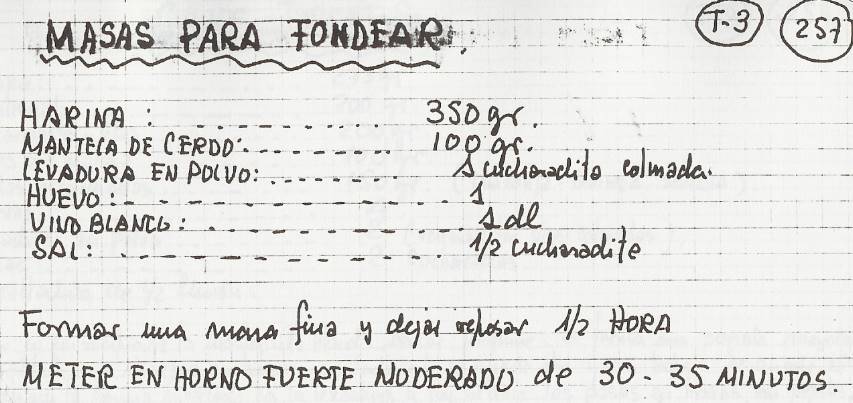 MASAS PARA FONDEAR.
T-3 257
HARINA: 350 gr.
MANTECA DE CERDO: 100 gr.
LEVADURA EN POLVO: 1 cucharadita colmada.
HUEVO: 1
VINO BLANCO: 1 dl
SAL: 1/2 cucharadite
Formar una masa fina y dejar reposar 1/2 HORA
METER EN HORNO FUERTE MODERADO de 30-35 MINUTOS.